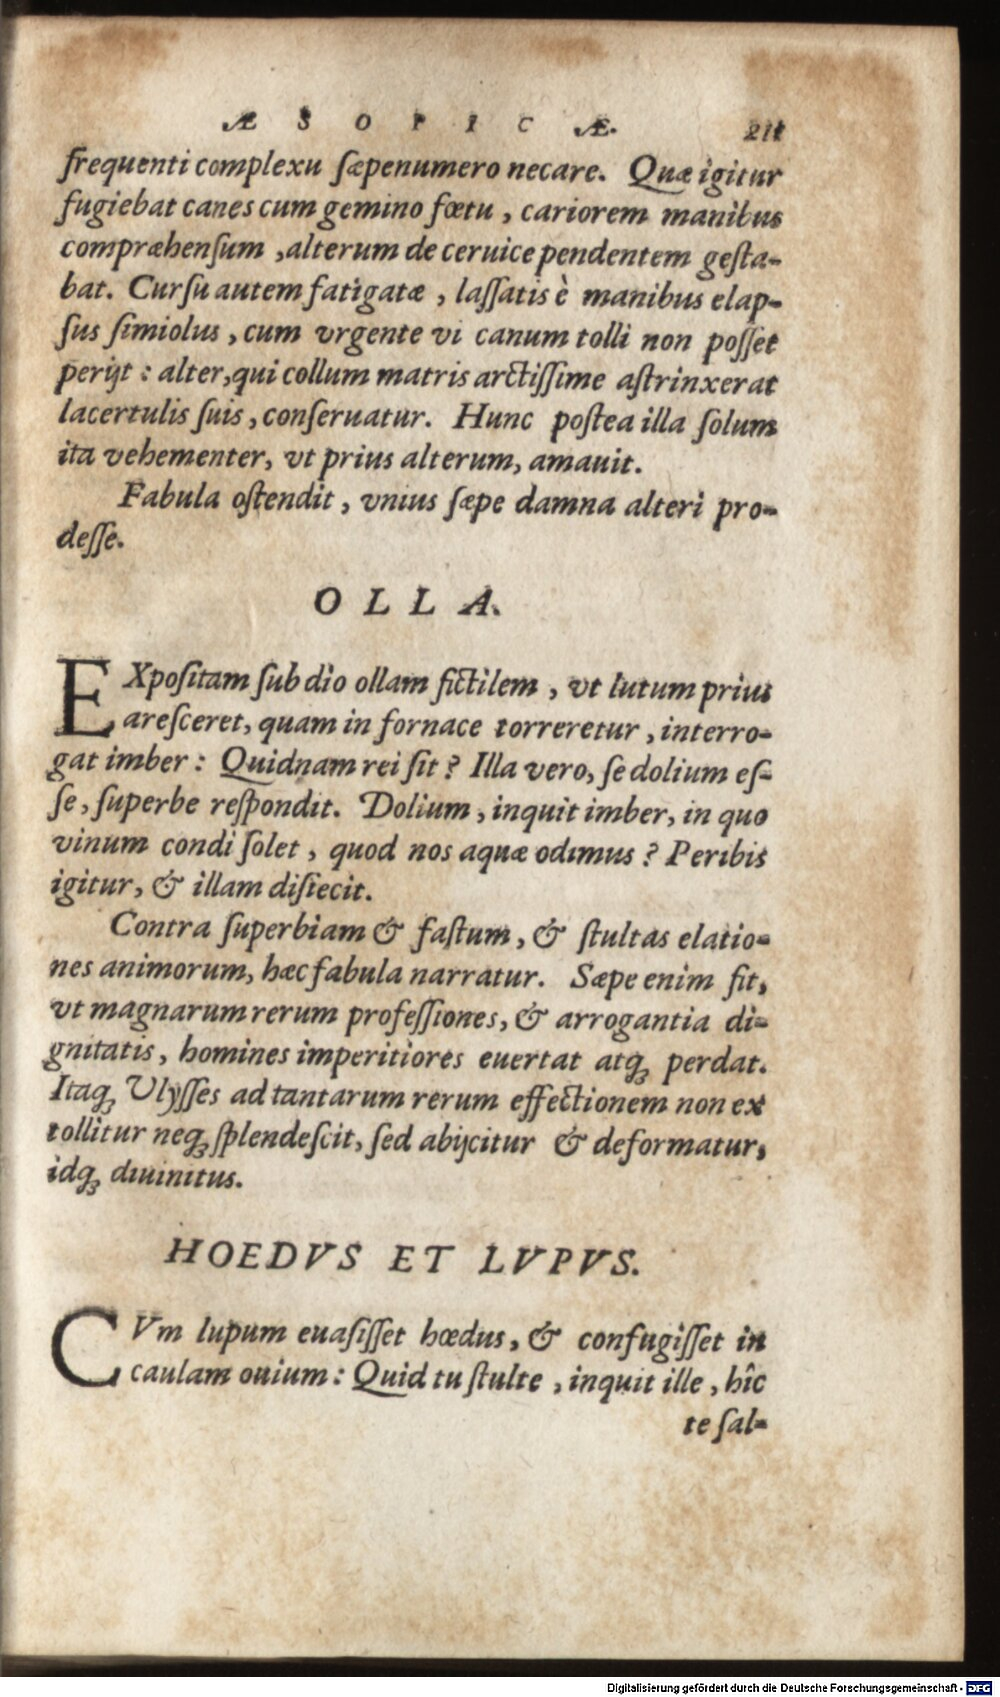 ÆSOPICÆ. 211
frequenti complexu sæpenumero necare. Quæ igitur
fugiebat canes cum gemino fœtu, cariorem manibus
compræhensum, alterum de ceruice pendentem gesta-
bat. Cursu autem fatigatæ, lassatis è manibus elap-
sus simiolus, cum vrgente vi canum tolli non posset
perijt: alter, qui collum matris arctissime astrinxerat
lacertulis suis, conseruatur. Hunc postea illa solum
ita vehementer, vt prius alterum, amauit.
Fabula ostendit, vnius sæpe damna alteri pro-
desse.
OLLA.
EXpositam sub dio ollam fictilem, vt lutum prius
aresceret, quam in fornace torreretur, interro-
gat imber: Quidnam rei sit? Illa vero, se dolium es-
se, superbe respondit. Dolium, inquit imber, in quo
vinum condi solet, quod nos aquæ odimus? Peribis
igitur, & illam disiecit.
Contra superbiam & fastum, & stultas elatio-
nes animorum, hæc fabula narratur. Sæpe enim fit,
vt magnarum rerum professiones, & arrogantia di-
gnitatis, homines imperitiores euertat atq; perdat.
Itaq; Vlysses ad tantarum rerum effectionem non ex
tollitur neq; splendescit, sed abijcitur & deformatur,
idq; diuinitus.
HOEDVS ET LVPVS.
CVm lupum euasisset hœdus, & confugisset in
caulam ouium: Quid tu stulte, inquit ille, hîc
te sal-
Digitalisierung gefördert durch die Deutsche Forschungsgemeinschaft - DFG